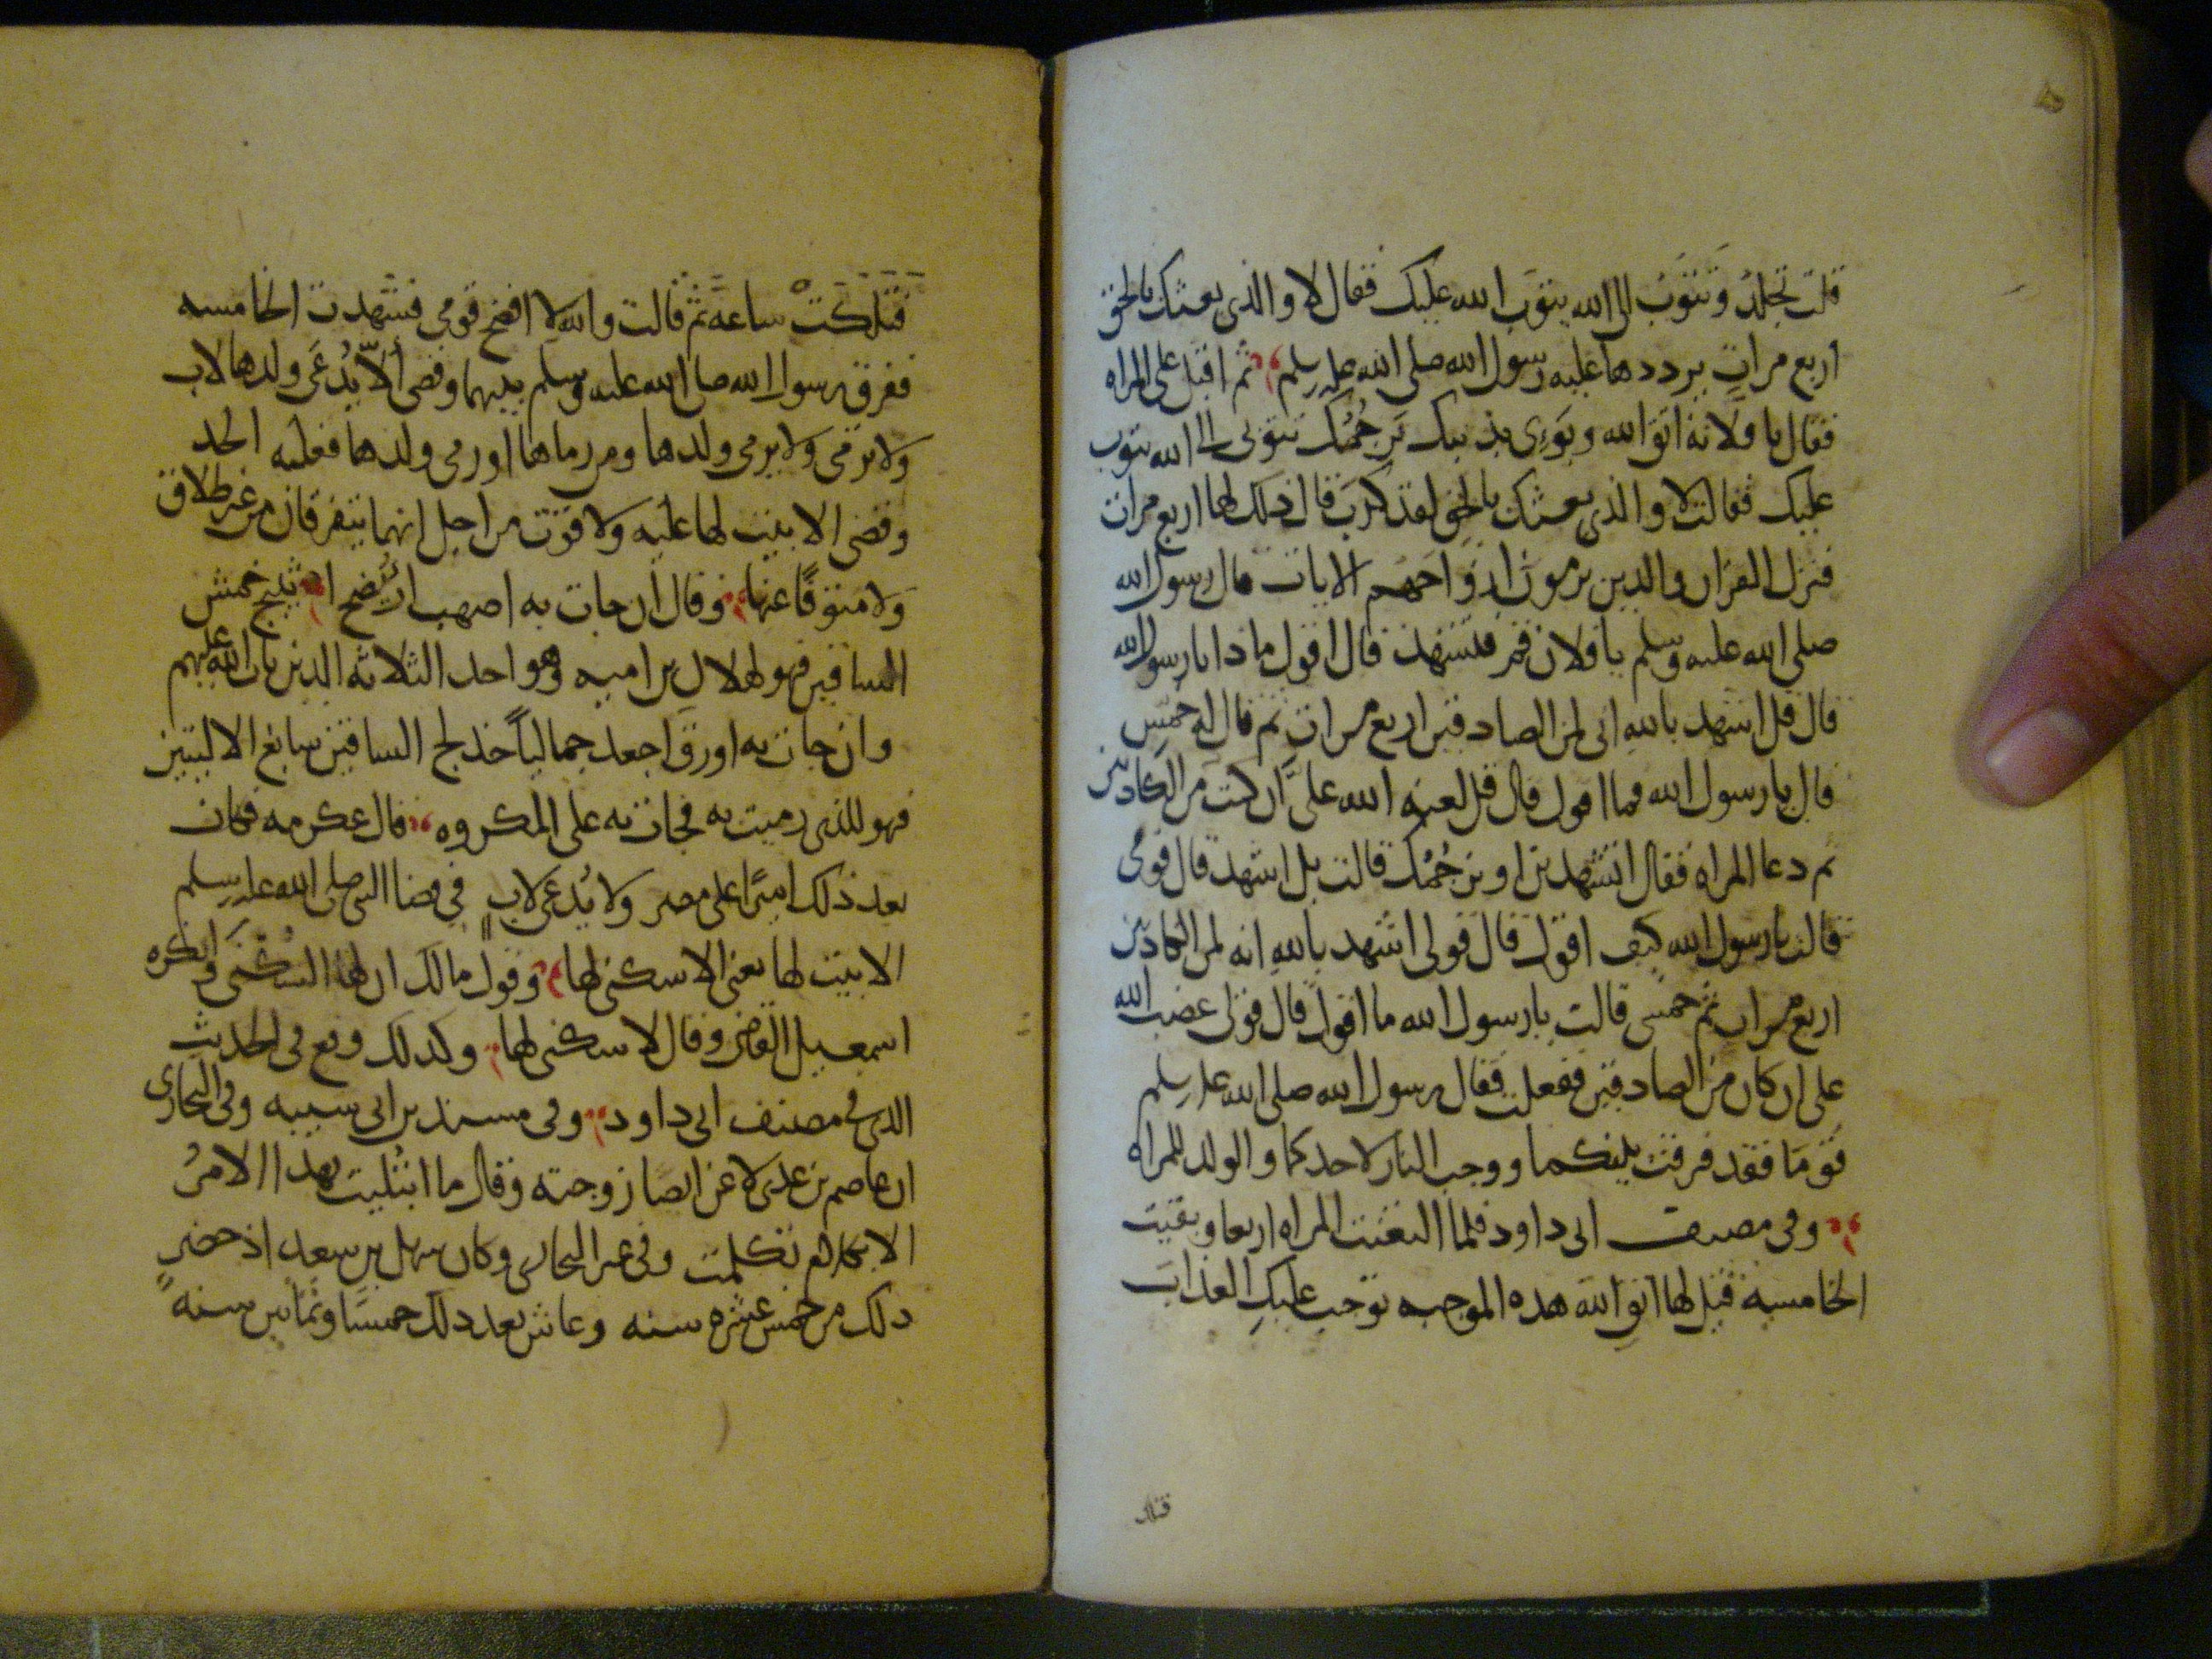 قلت تجلد وتتوب الى الله يتوب الله عليك فقال لا والذي بعثك بالحق
اربع مرات يرددها عليه رسول الله صلى الله عليه وسلم ثم اقبل على المراه
فقال يا فلانة اتق الله وبوءى بذنبك نرجمك تتوبى الى الله يتوب
عليك فقالت لا والذي بعثك بالحق لقد كذب قال ذلك لها اربع مرات
فنزل القران والذين يرمون ازواجهم الايات قال رسول الله
صلى الله عليه وسلم يا فلان قم فلتشهد قال اقول ماذا يا رسول الله
قال قل اشهد بالله انى لمن الصادقين اربع مرات ثم قال له خمس
قال يا رسول الله فما اقول قال قل لعنه الله على ان كنت من الكاذبين
ثم دعا المراه فقال اتشهدين او نرجمك قالت بل اشهد قال قومى
قالت يا رسول الله كيف اقول قال قولى اشهد بالله انه لمن الكاذبين
اربع مرات ثم خمس قالت يا رسول الله ما اقول قال قولى غضب الله
على ان كان من الصادقين ففعلت فقال رسول الله صلى الله عليه وسلم
قوما فقد فرقت بينكما ووجب النار لاحدكما والولد للمراه
وفى مصنف ابى داود فلما التعنت المراه اربعا وبقيت
الخامسة قيل لها اتق الله هذه الموجبه توجب عليك العذاب
فتلك
فتلكت ساعة ثم قالت والله لا افضح قومى فشهدت الخامسه
ففرق رسول الله صلى الله عليه وسلم بينهما وقضى ألّا يُدعَى ولدها لاب
ولا ترمى ولا يرمى ولدها ومن رماها او رمى ولدها فعليه الحد
وقضى الا بيت لها عليه ولا قوت من اجل انهما يتفرقان من غير طلاق
ولا متوفًا عنها وقال ان جات به اصهب اريضح اثيبج خمش
الساقين فهو لهلال بن اميه وهو احد الثلاثة الذين تاب الله عليهم
وان جات به اورق اجعد جماليا خدلج الساقين سابغ الاليتين
فهو للذى رميت به فجات به على المكروه قال عكرمه فكان
بعد ذلك اميرًا على مصر ولا يُدعى لاب فى قضا النبى صلى الله عليه وسلم
الا بيت لها يعنى الا سكنى لها وقول مالك ان لها السكنى وانكره
اسمعيل القاضى وقال لا سكنى لها وكذلك وقع فى الحديث
الذى فى مصنف ابى داود وفى مسند بن ابى شيبه وفى البخارى
ان عاصم بن عدى لاعن ايضا زوجته وقال ما ابتليت بهذا الامر
الا بكلام تكلمت وفى غير البخارى وكان سهل بن سعد اذ حضر
ذلك من خمس عشره سنه وعاش بعد ذلك خمسًا وثمانين سنه